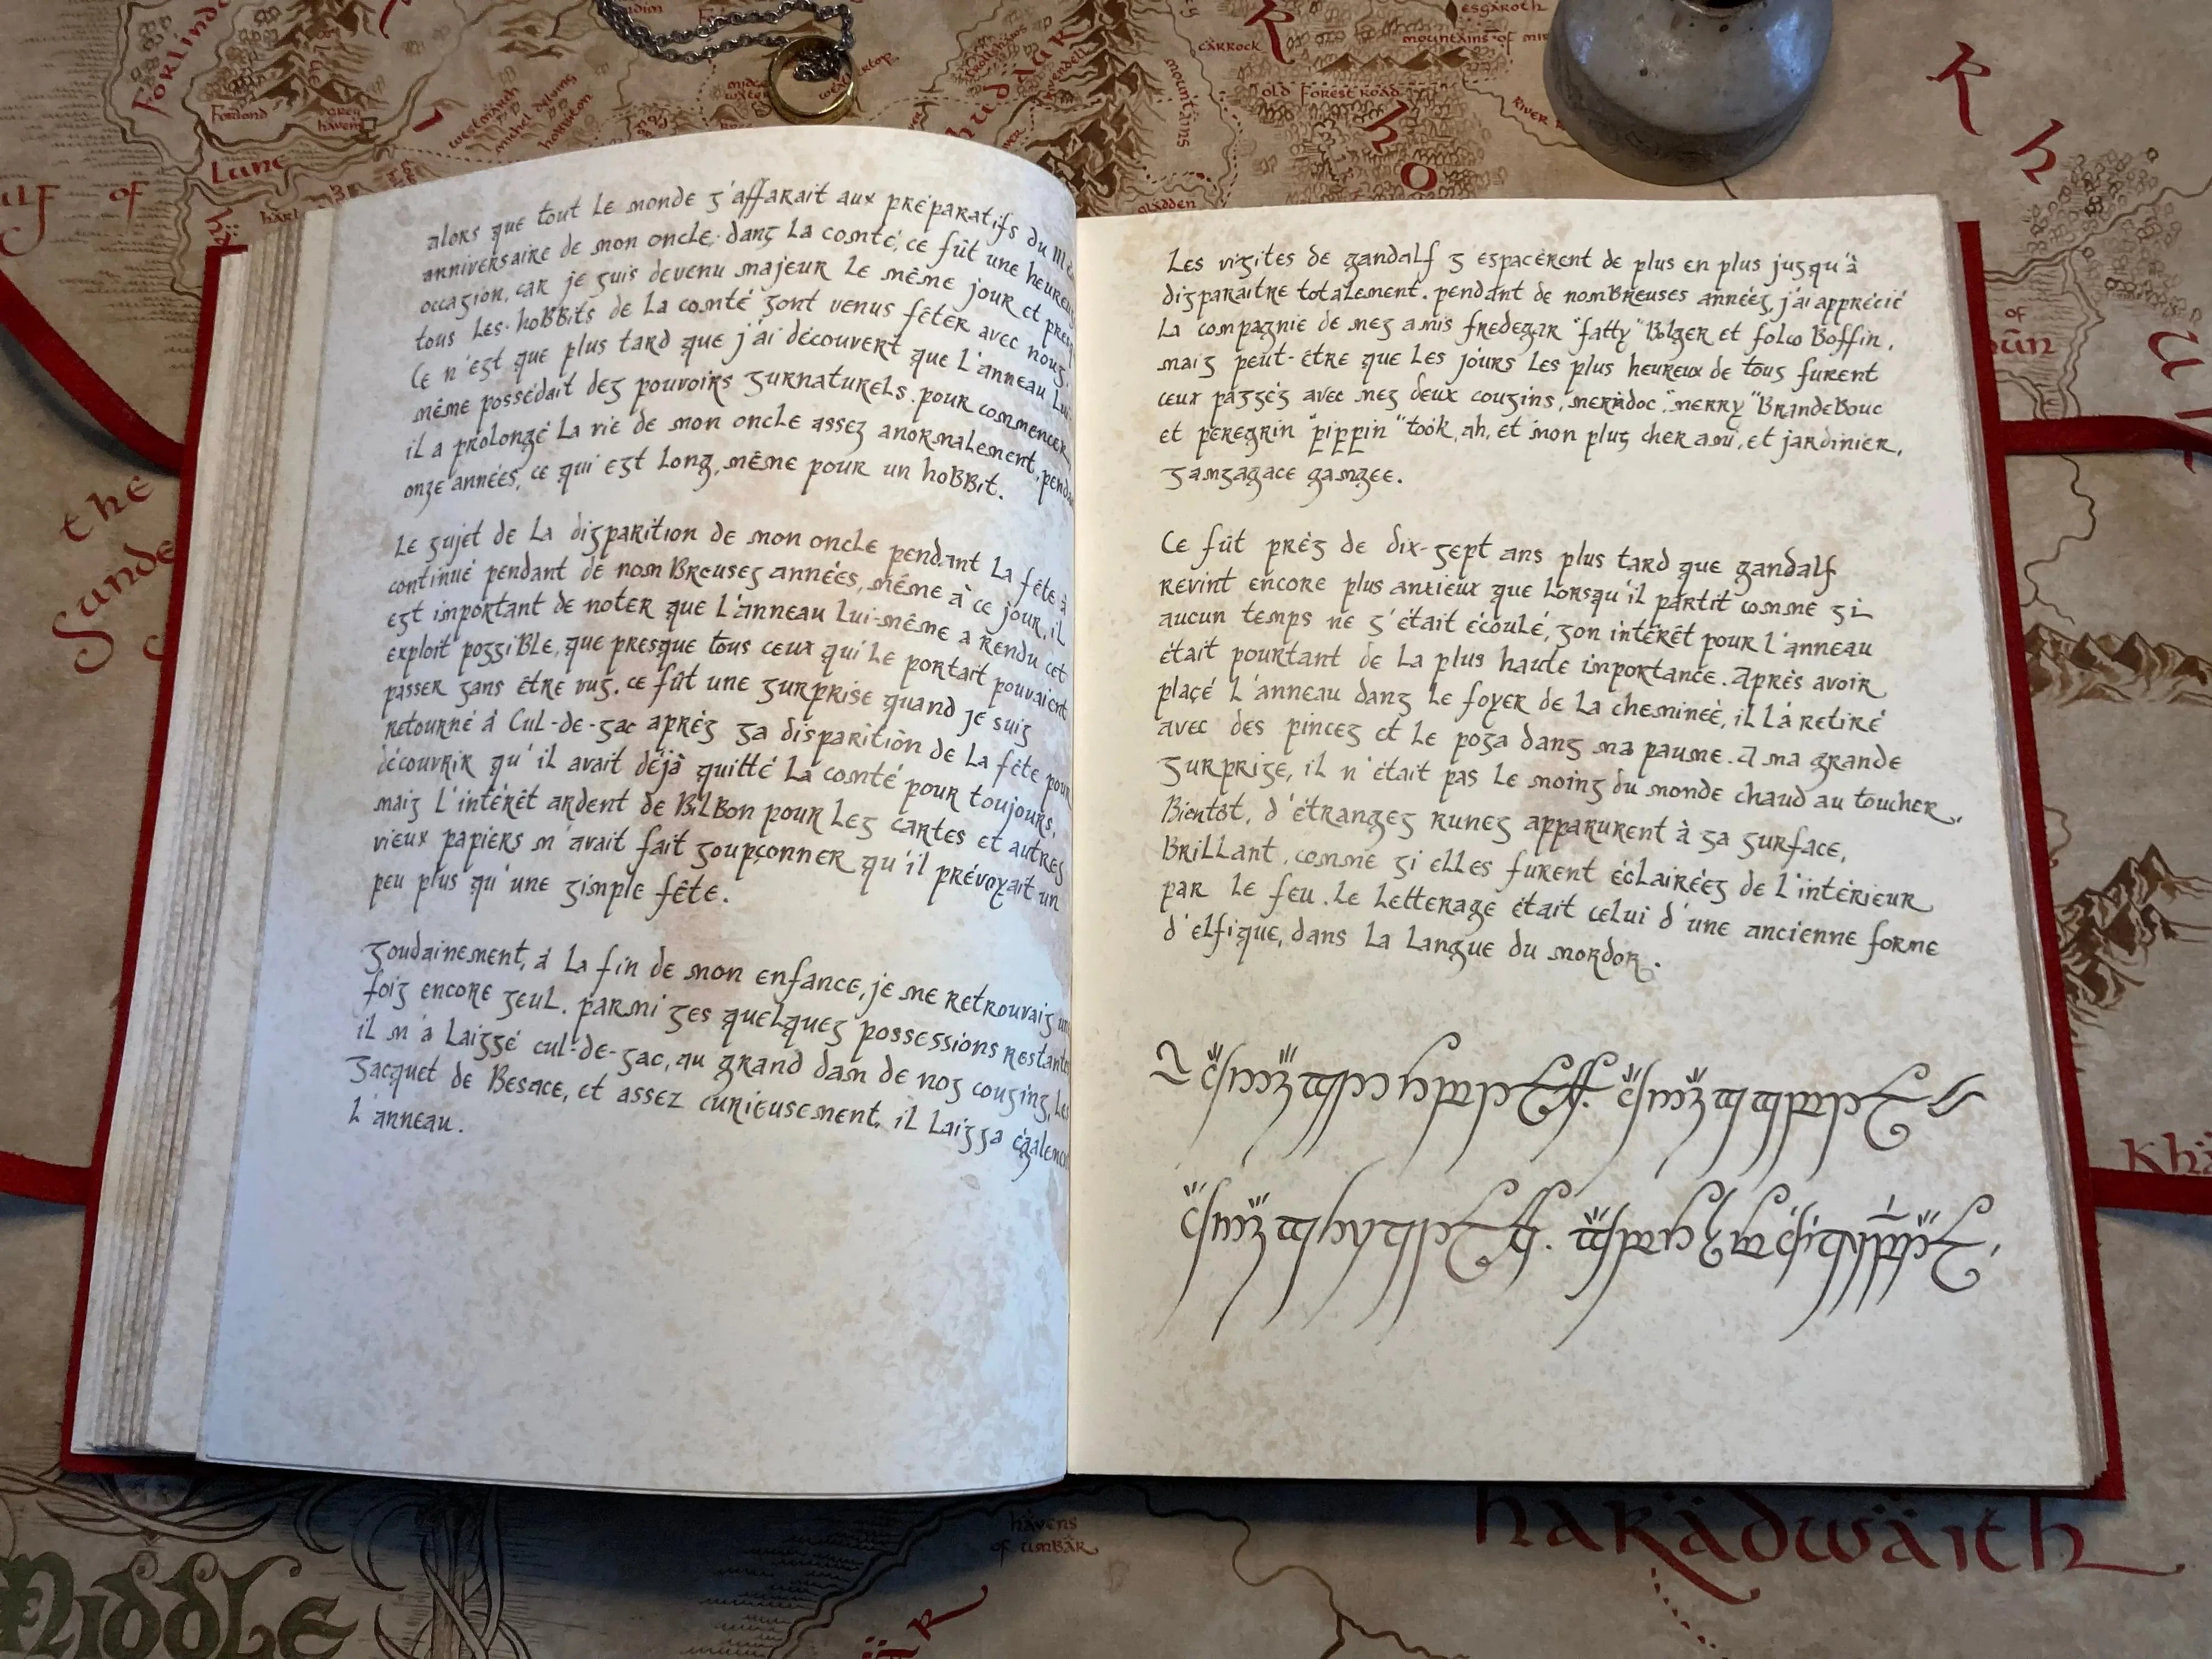 alors que tout le monde s'affarait aux préparatifs du
anniversaire de mon oncle, dans la comté, ce fût une heureuse
occasion, car je suis devenu majeur le même jour et
tous les hobbits de la comté sont venus fêter avec nous.
Ce n'est que plus tard que j'ai découvert que l'anneau lui-
même possédait des pouvoirs surnaturels. pour commencer,
il a prolongé la vie de mon oncle assez anormalement,
onze années, ce qui est long, même pour un hobbit.
Le sujet de la disparition de mon oncle pendant la fête à
continué pendant de nombreuses années, même à ce jour, il
est important de noter que l'anneau lui-même a rendu cet
exploit possible, que presque tous ceux qui le portait pouvaient
passer sans être vus. ce fût une surprise quand je suis
retourné à Cul-de-sac après sa disparition de la fête pour
découvrir qu'il avait déjà quitté la comté pour toujours,
mais l'intérêt ardent de Bilbon pour les cartes et autres
vieux papiers m'avait fait soupçonner qu'il prévoyait un
peu plus qu'une simple fête.
Soudainement, à la fin de mon enfance, je me retrouvais
fois encore seul. parmi ses quelques possessions
il m'a laissé cul-de-sac, au grand dam de nos cousins, les
Sacquet de Besace, et assez curieusement, il laissa
l'anneau.
Les visites de gandalf s espacèrent de plus en plus jusqu'à
disparaitre totalement. pendant de nombreuses années, j'ai apprécié
la compagnie de mes amis fredegar "fatty" Bolger et folco Boffin,
mais peut-être que les jours les plus heureux de tous furent
ceux passés avec mes deux cousins, meriadoc "merry" Brandebouc
et peregrin "pippin" took, ah, et mon plus cher ami, et jardinier,
samsagace gamgee.
Ce fût près de dix-sept ans plus tard que gandalf
revint encore plus anxieux que lorsqu'il partit comme si
aucun temps ne s'était écoulé, son intérêt pour l'anneau
était pourtant de la plus haute importance. Après avoir
placé l'anneau dans le foyer de la cheminée, il l'a retiré
avec des pinces et le posa dans ma paume. A ma grande
surprise, il n'était pas le moins du monde chaud au toucher.
Bientôt, d'étranges runes apparurent à sa surface,
Brillant, comme si elles furent éclairées de l'intérieur
par le feu. le letterage était celui d'une ancienne forme
d'elfique, dans la langue du mordor.
Forlindon
Lune
Gulf of
michel delving
hobbiton
weathertop
carrock
old forest road
mountains of
esgaroth
gladden
mountains
the
Sunde
havens
of umbar
harädwäith
Middle
Khä